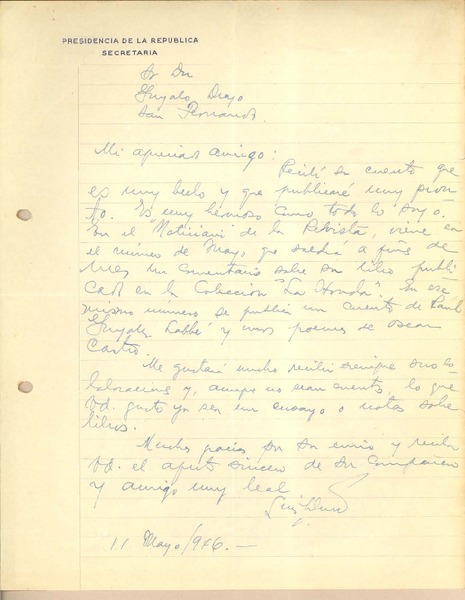 PRESIDENCIA DE LA REPUBLICA
SECRETARIA
Sr Don
Gonzalo Drago
San Fernando.
Mi apreciado amigo:
Recibí su cuento que
es muy bello y que publicaré muy pron
to. Es muy hermoso como todo lo suyo.
En el "Noticiario" de la Revista, viene en
el número de Mayo, que saldrá a fines de
mes un comentario sobre su libro publi
cado en la Colección "La Honda". En ese
mismo número se publica un cuento de Raúl
González Labbé y unos poemas de Oscar
Castro.
Me gustará mucho recibir siempre sus co
laboraciones y, aunque no sean cuentos, lo que
Vd. guste ya sea un ensayo o notas sobre
libros.
Muchas gracias por su envío y reciba
Vd. el afecto sincero de su compañero
y amigo muy leal
11 Mayo/946.-